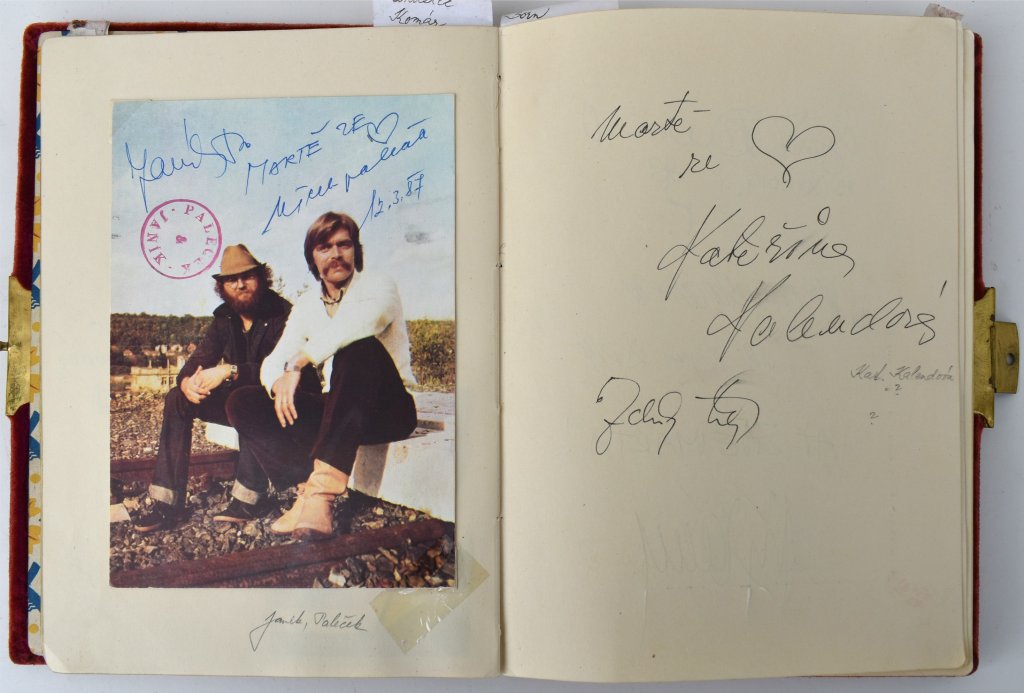 Komár
Janík
MARTĚ ZE
12.3.87
JANÍK & PALEČEK
Janík, Paleček
Martě
ze
Kateřina
Kalendová
Kat. Kalendová
?
?